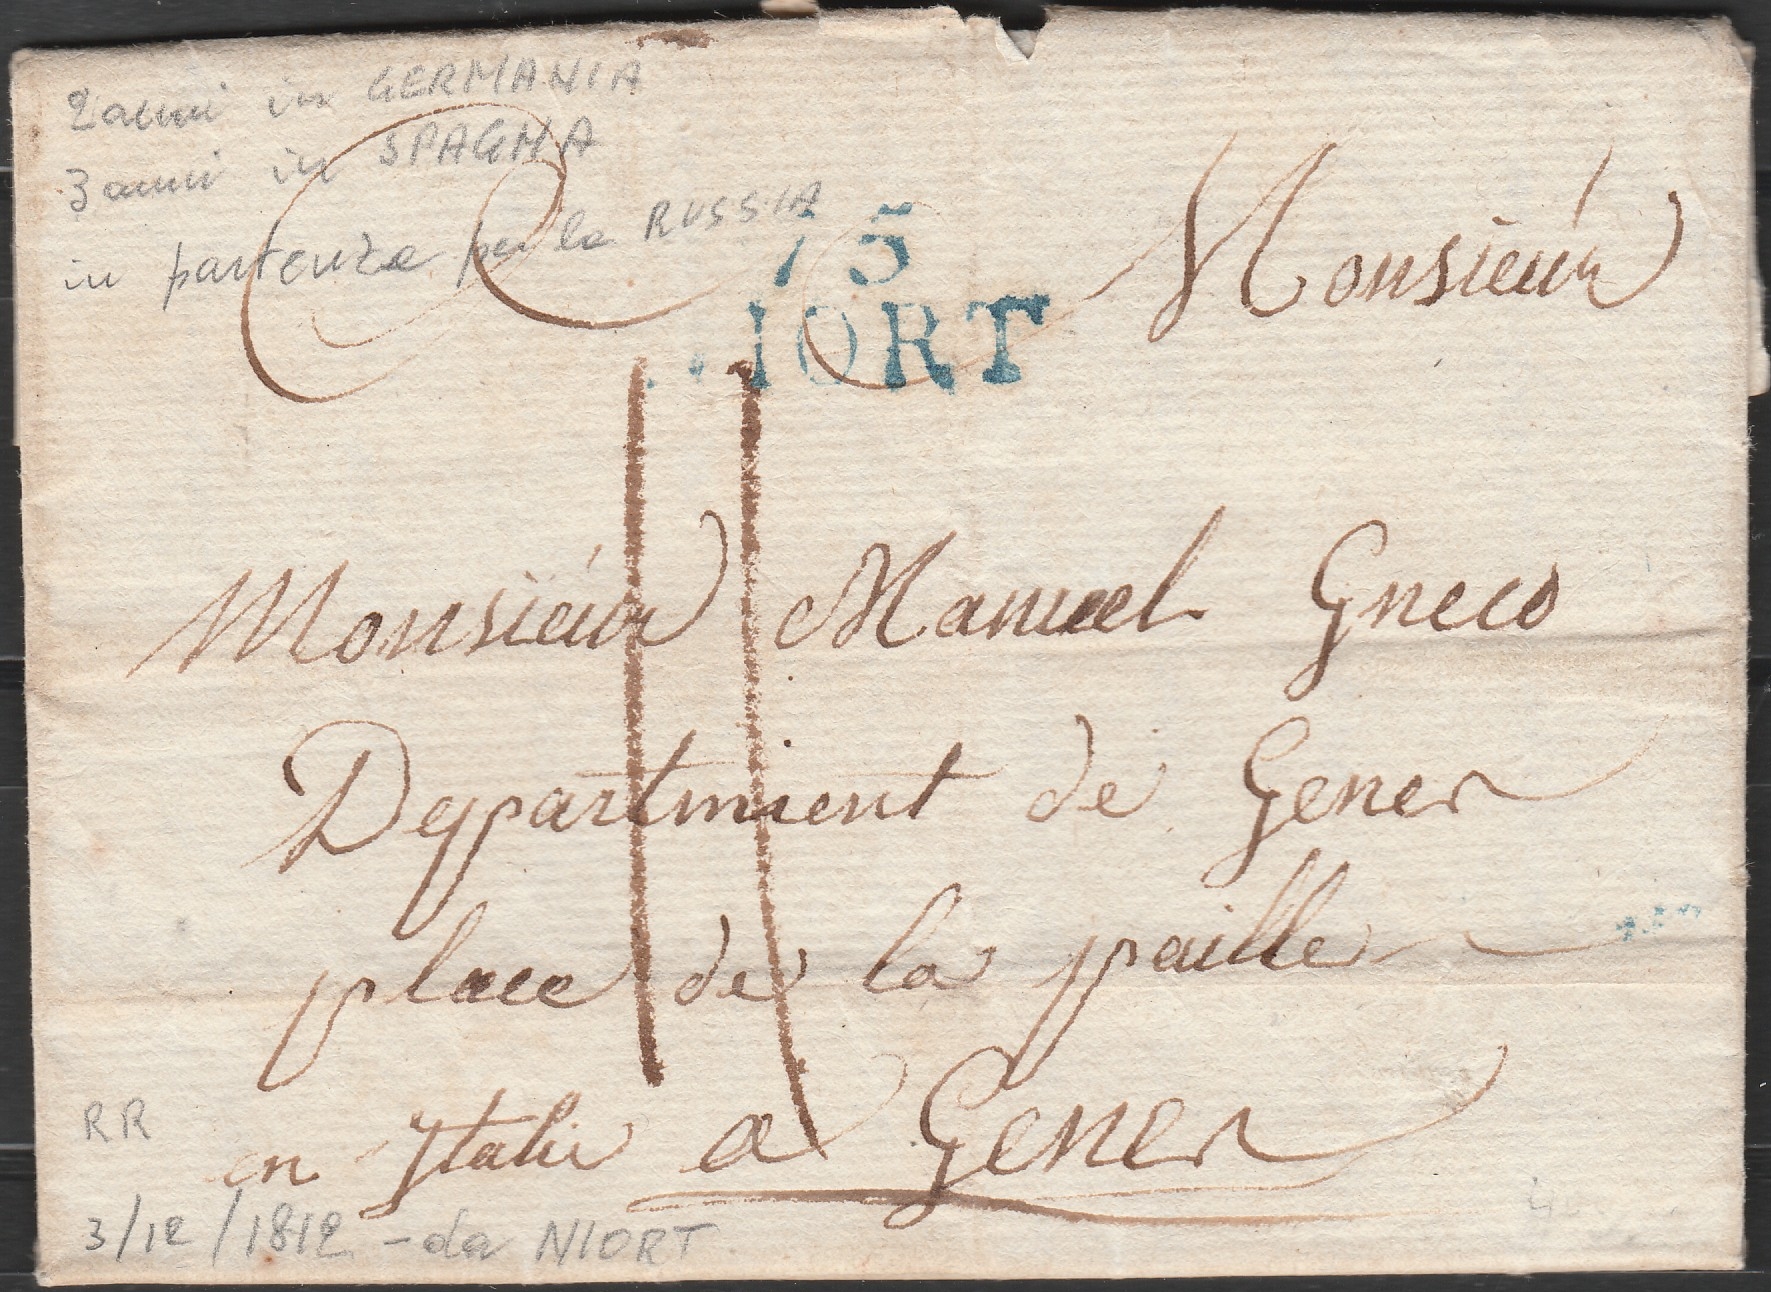 2 anni in GERMANIA
3 anni in SPAGNA
in partenza per la RUSSIA
75
NIORT
Monsieur
Monsieur Manuel Gneco
Departement de Gener
place de la paille
en Italie a Gener
RR
3/12/1812 - da NIORT